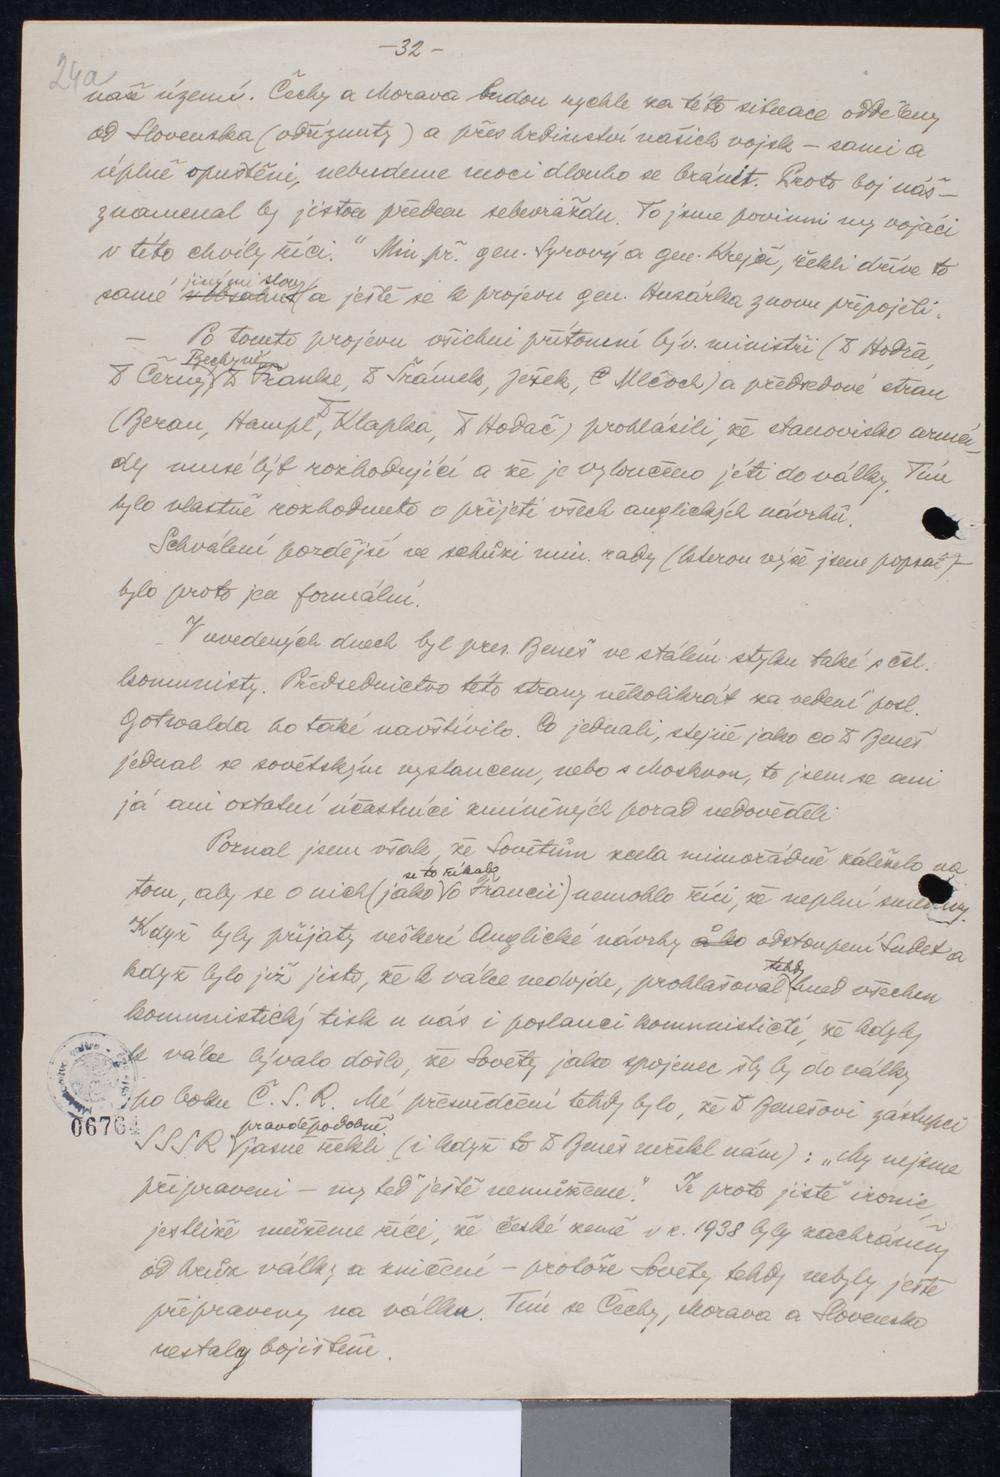 -32-
24a
naše území. Čechy a Morava budou rychle za této situace odděleny
od Slovenska (odříznuty) a přes hrdinství našich vojsk - sami a
úplně opuštěni, nebudeme moci dlouho se bránit. Proto boj náš -
znamenal by jistou předem sebevraždu. To jsme povinni my vojáci
v této chvíli říci." Min. př. gen. Syrový a gen. Krejčí, řekli dříve to
jinými slovy
samé (a ještě se k projevu gen. Husárka znovu připojili.
- Po tomto projevu všichni přítomní býv. ministři (D Hodža,
Bechyně
D Černý, D Franke, D Šrámek, Ježek, Mlčoch) a předsedové stran
(Beran, Hampl, D Klapka, D Hodáč) prohlásili, že stanovisko armá-
dy musí být rozhodující a že je vyloučeno jíti do války. Tím
bylo vlastně rozhodnuto o přijetí všech anglických návrhů.
Schválení pozdější ve schůzi min. rady (kterou výše jsem popsal)
bylo proto jen formální.
V uvedených dnech byl pres. Beneš ve stálém styku také s čsl.
komunisty. Předsednictvo této strany několikrát za vedení posl.
Gotwalda ho také navštívilo. Co jednali, stejně jako co D Beneš
jednal se sovětským vyslancem, nebo s Moskvou, to jsem se ani
já ani ostatní účastníci zmíněných porad nedověděli
Poznal jsem však, že Sovětům zcela mimořádně záleželo na
se to říkalo
tom, aby se o nich (jako o Francii) nemohlo říci, že neplní smlouvy.
Když byly přijaty veškeré Anglické návrhy a ho odstoupení Sudet a
tehdy
když bylo již jisto, že k válce nedojde, prohlašoval hned všechen
komunistický tisk u nás i poslanci komunističtí, že kdyby
k válce bývalo došlo, že Sověty jako spojenec šly by do války
po boku Č. S. R. Mé přesvědčení tehdy bylo, že D Benešovi zástupci
06764
pravděpodobně
SSSR jasně řekli (i když to D Beneš neřekl nám) : „My nejsme
připraveni - my teď ještě nemůžeme." Je proto jistě ironie,
jestliže můžeme říci, že české země v r. 1938 byly zachráněny
od hrůz války a zničení - protože Sověty tehdy nebyly ještě
připraveny na válku. Tím se Čechy, Morava a Slovensko
nestaly bojištěm.